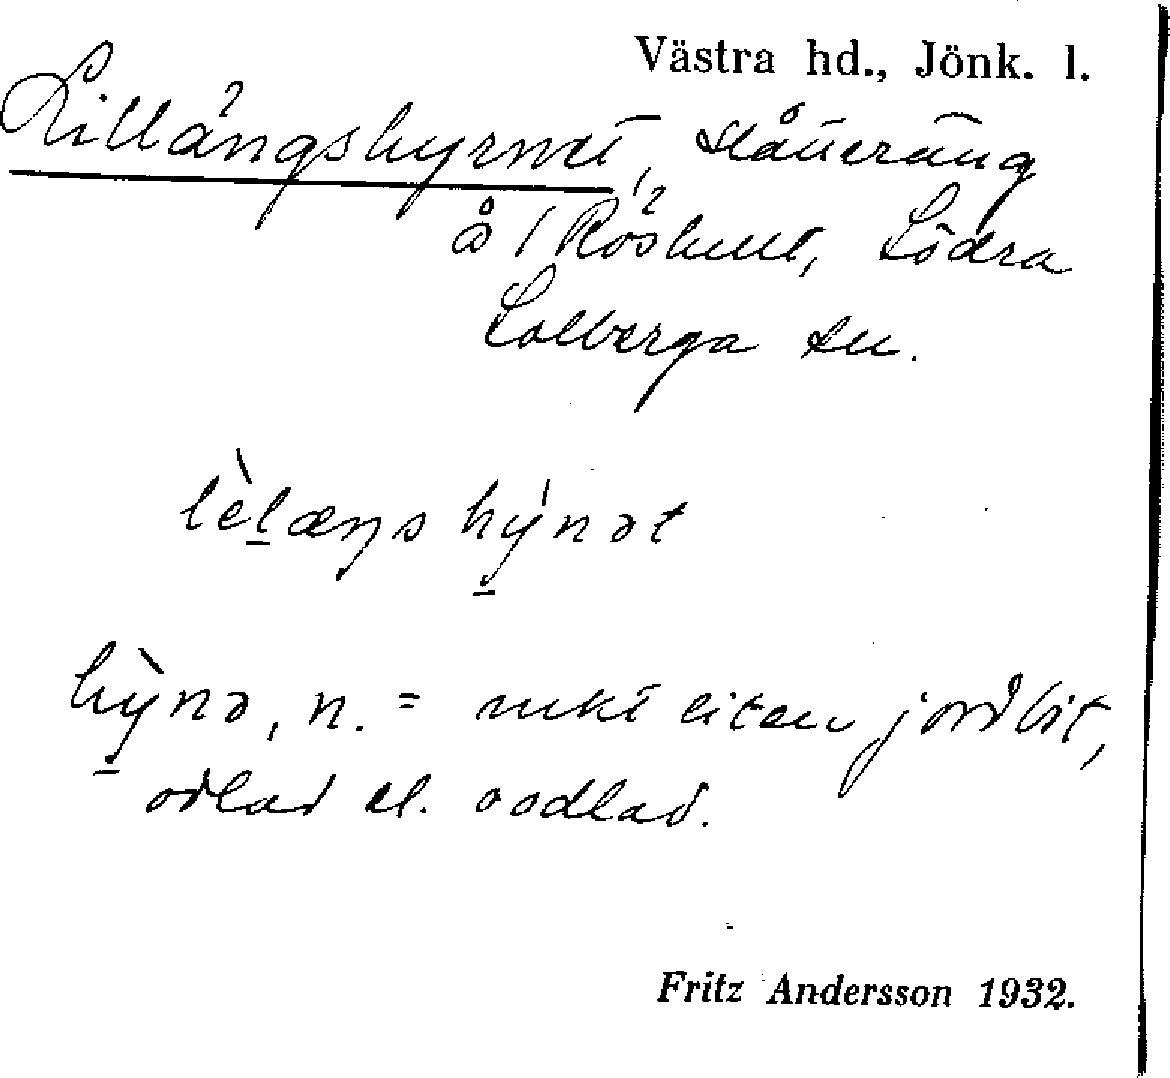 Västra hd., Jönk. l.
Lillängshyrnet, slåtteräng
å 1 Röshult, Södra
Solberga sn.
lèl̲æŋs hý̲nət
hỳ̲nə, n. = mkt liten jordbit,
odlad el. oodlad.
Fritz Andersson 1932.